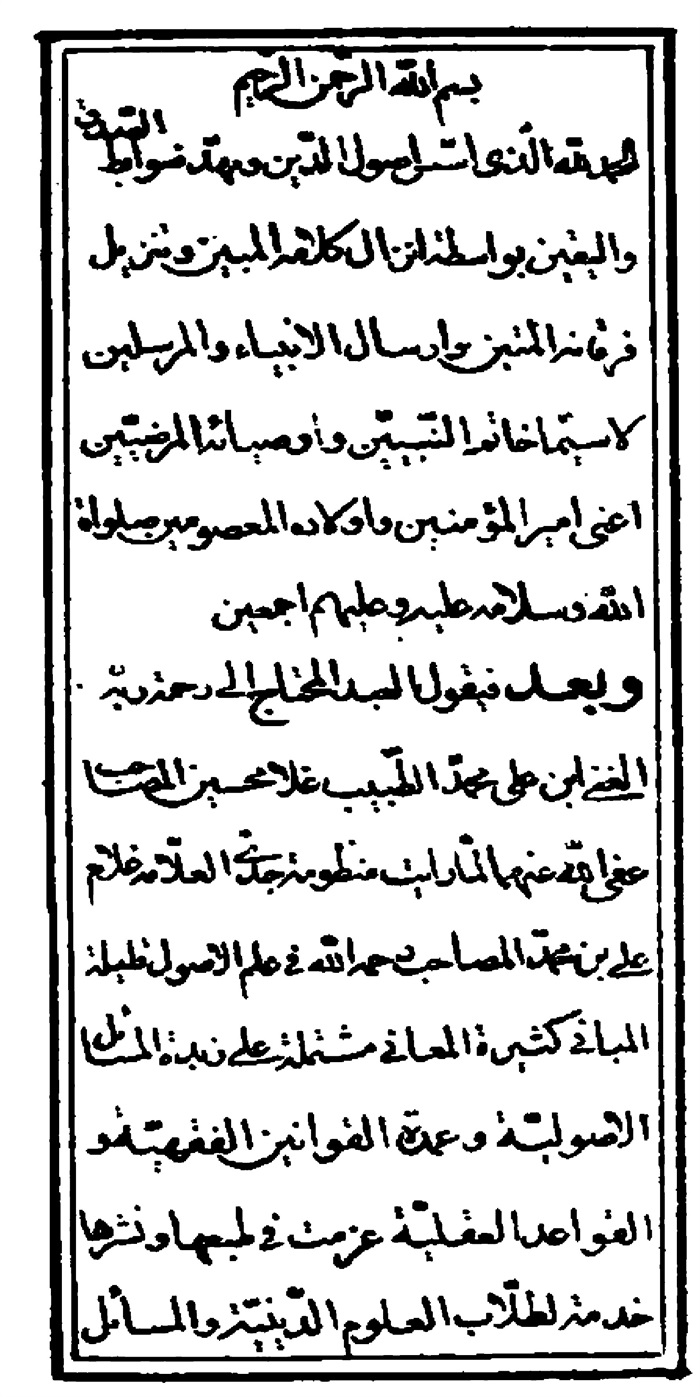 بسم الله الرّحمن الرّحيم
الحمد لله الّذى اسّس اصول الدّين ومهّد ضوابط الصّدق
واليقين بواسطة انزال كلامه المبين وتنزيل
فرقانه المتين وارسال الانبياء والمرسلين
لاسيّما خاتم النّبيّين واوصيائه المرضيّين
اعنى امير المؤمنين واولاده المعصومين صلواة
الله وسلامه عليه وعليهم اجمعين
وبعد فيقول العبد المحتاج الى رحمة ربّه
الغنى ابن على محمّد الطّبيب غلامحسين المصاحب
عفى الله عنهما لمّا رايت منظومة جدّى العلّامه غلام
على بن محمّد المصاحب رحمه الله فى علم الاصول قليلة
المبانى كثيرة المعانى مشتملة على زبدة المسائل
الاصوليّة وعمدة القوانين الفقهيّة و
القواعد العقليّة عزمت فى طبعها ونشرها
خدمة لطلّاب العلوم الدّينيّة والمسائل